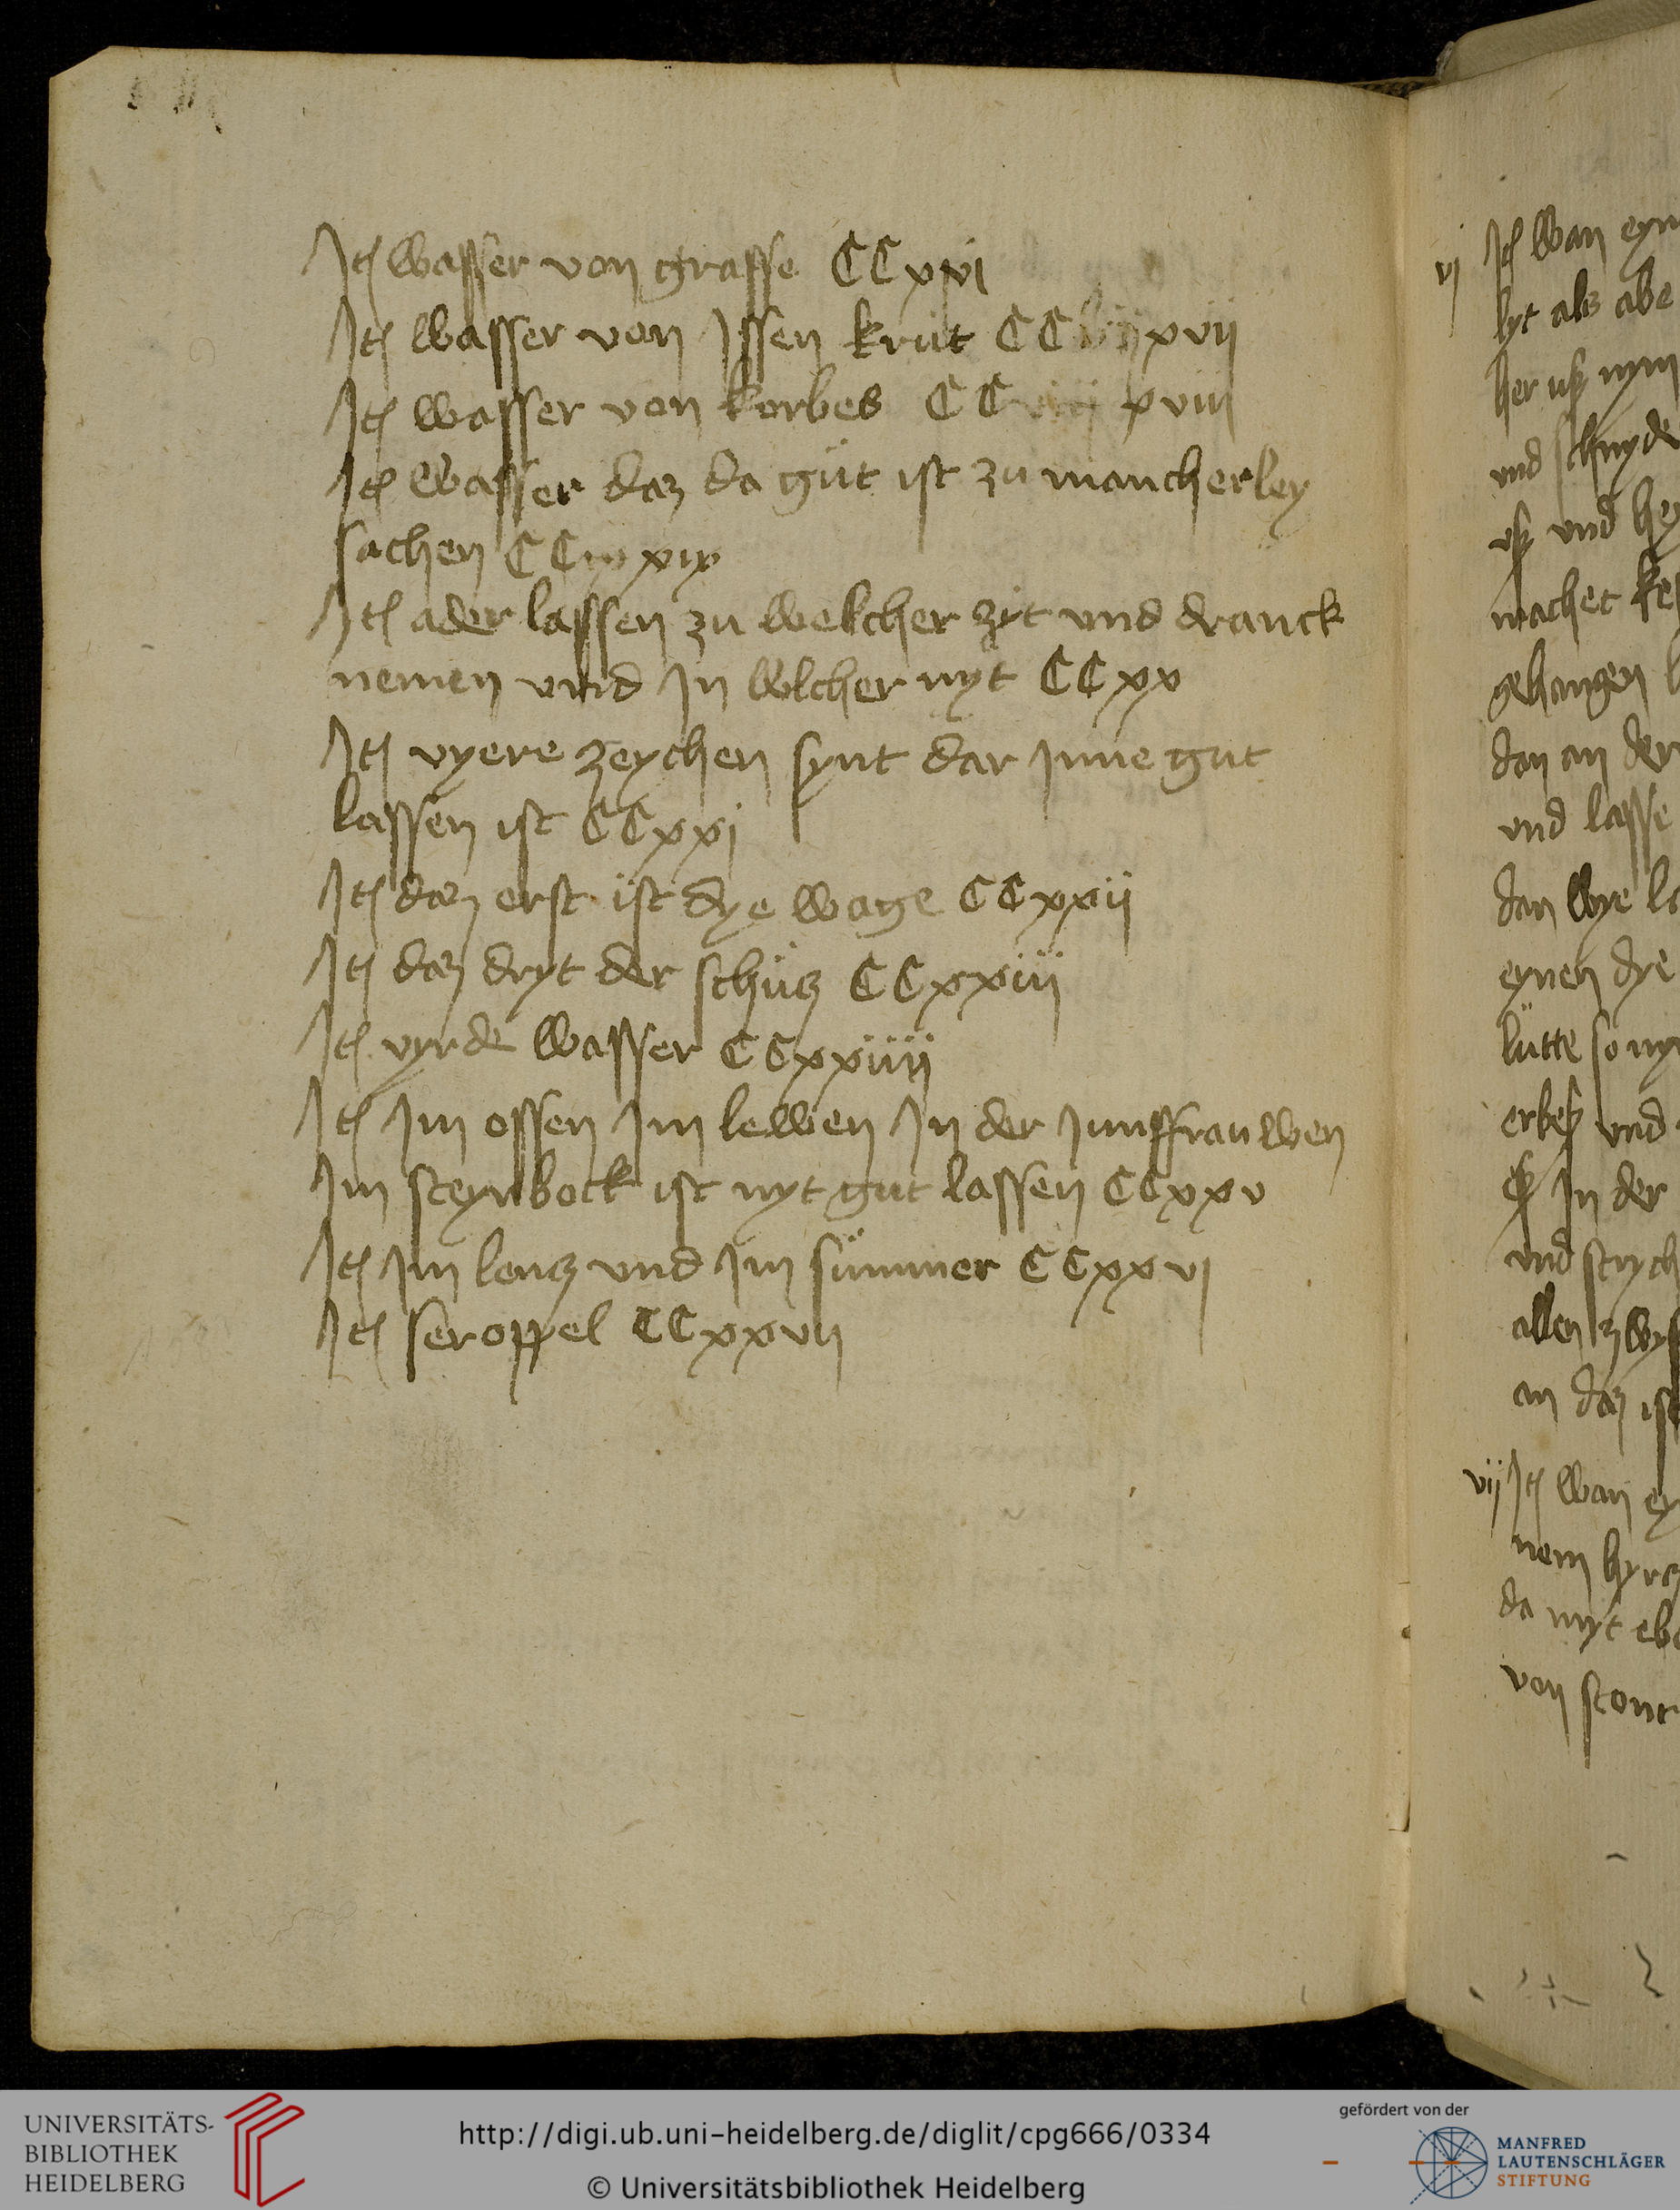 Itē wasser von grasse CC xvi
Itē wasser von Issen krut CC xvii
Itē wasser von korbes CC xviii
Itē wasser daz da gut ist zu mancherley
sachen CC xix
Itē ader lassen zu welcher zyt und dranck
nemen und In wlcher nyt CC xx
Itē vyere zeychen synt dar Inne gut
lassen ist CC xxi
Itē daz erst ist dye wage CC xxii
Itē daz dryt der schucz CC xxiii
Itē vyrde wasser CC xxiiii
Itē Im ossen Im lewen In der Junffrauwen
Im steynbock ist nyt gut lassen CC xxv
Itē Im lencz und Im summer CC xxvi
Itē seroppel CC xxvii
vi Itē wan eyn
lyt als abe
her usz nym
und schnyde
usz und
machet
gehangen
dan an der
und lasse
dan wye
eynen dye
lutte so
und
In der
und
allen
an daz ist
vii Itē wan
nem
da myt
von
UNIVERSITÄTS-
BIBLIOTHEK
HEIDELBERG
http://digi.ub.uni-heidelberg.de/diglit/cpg666/0334
© Universitätsbibliothek Heidelberg
gefördert von der
MANFRED
LAUTENSCHLÄGER
STIFTUNG